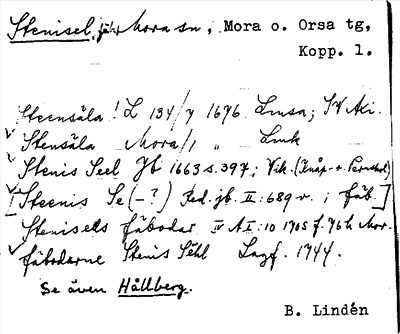 Stenisel, fäb, Mora sn, Mora o. Orsa tg,
Kopp. l.
Steensäla! L 134/7 1676 Lmsa; SV Aki.
Stensäla Mora/1 " Lmk
Stenis Seel Jb 1663 s. 397; Vik. (Knåp- + Pernsbol)
[Steenis Se (-?) Red. jb. II:689 v.; fäb.]
Stenisels fäbodar IV AI:10 1705 f. 76 h Mor.
fäboderne Stenis Sähl Lagf. 1744.
Se även Hållberg.
B. Lindén